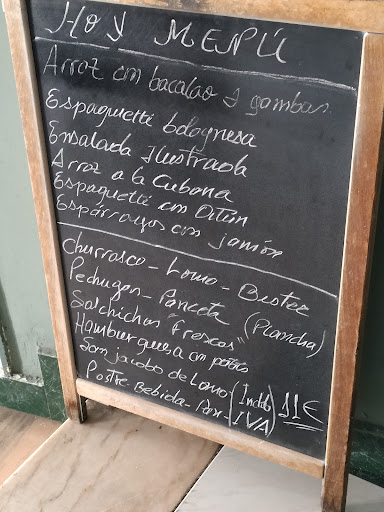 HOY MENÚ
Arroz con bacalao y gambas
Espaguetti bolognesa
Ensalada Ilustrada
Arroz a la Cubana
Espaguetti con Atún
Espárragos con jamón
Churrasco - Lomo - Bistec
Pechugas - Panceta (Plancha)
Salchichas "frescas"
Hamburguesa con patatas
San jacobo de Lomo
Postre - Bebida - Pan (Incluido IVA) 11€